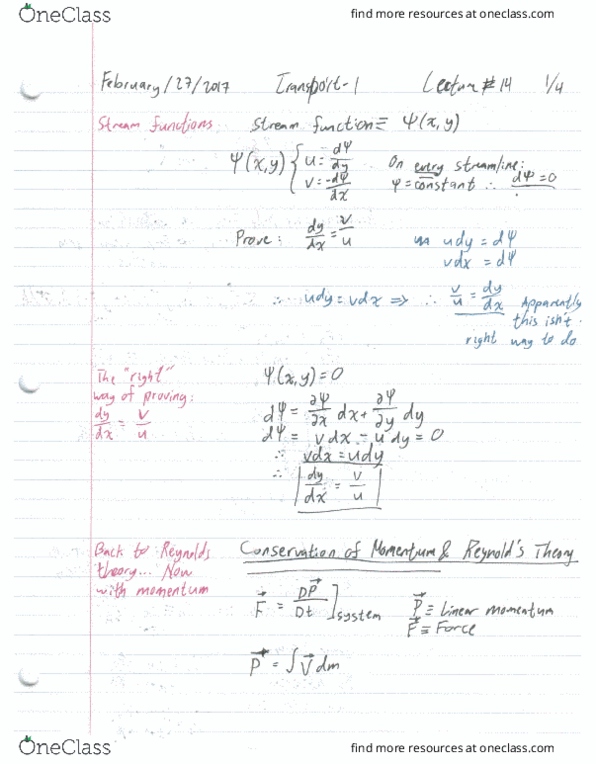 OneClass
find more resources at oneclass.com
February/27/2017 Transport-1 Lecture #14 1/4
Stream functions
Stream function ≡ Ψ(x,y)
Ψ(x,y) { u = dΨ/dy
v = -dΨ/dx
On every streamline:
Ψ = constant ∴ dΨ = 0
Prove: dy/dx = v/u
udy = dΨ
vdx = dΨ
∴ udy = vdx ⇒ ∴ v/u = dy/dx
Apparently
this isn't
right way to do
The "right"
way of proving:
dy/dx = v/u
Ψ(x,y) = 0
dΨ = ∂Ψ/∂x dx + ∂Ψ/∂y dy
dΨ = vdx - udy = 0
∴ vdx = udy
∴ dy/dx = v/u
Back to Reynolds
theory... Now
with momentum
Conservation of Momentum & Reynold's Theory
F⃗ = DP⃗/Dt ]system
P⃗ ≡ Linear momentum
F⃗ ≡ Force
P⃗ = ∫ V⃗ dm
OneClass
find more resources at oneclass.com